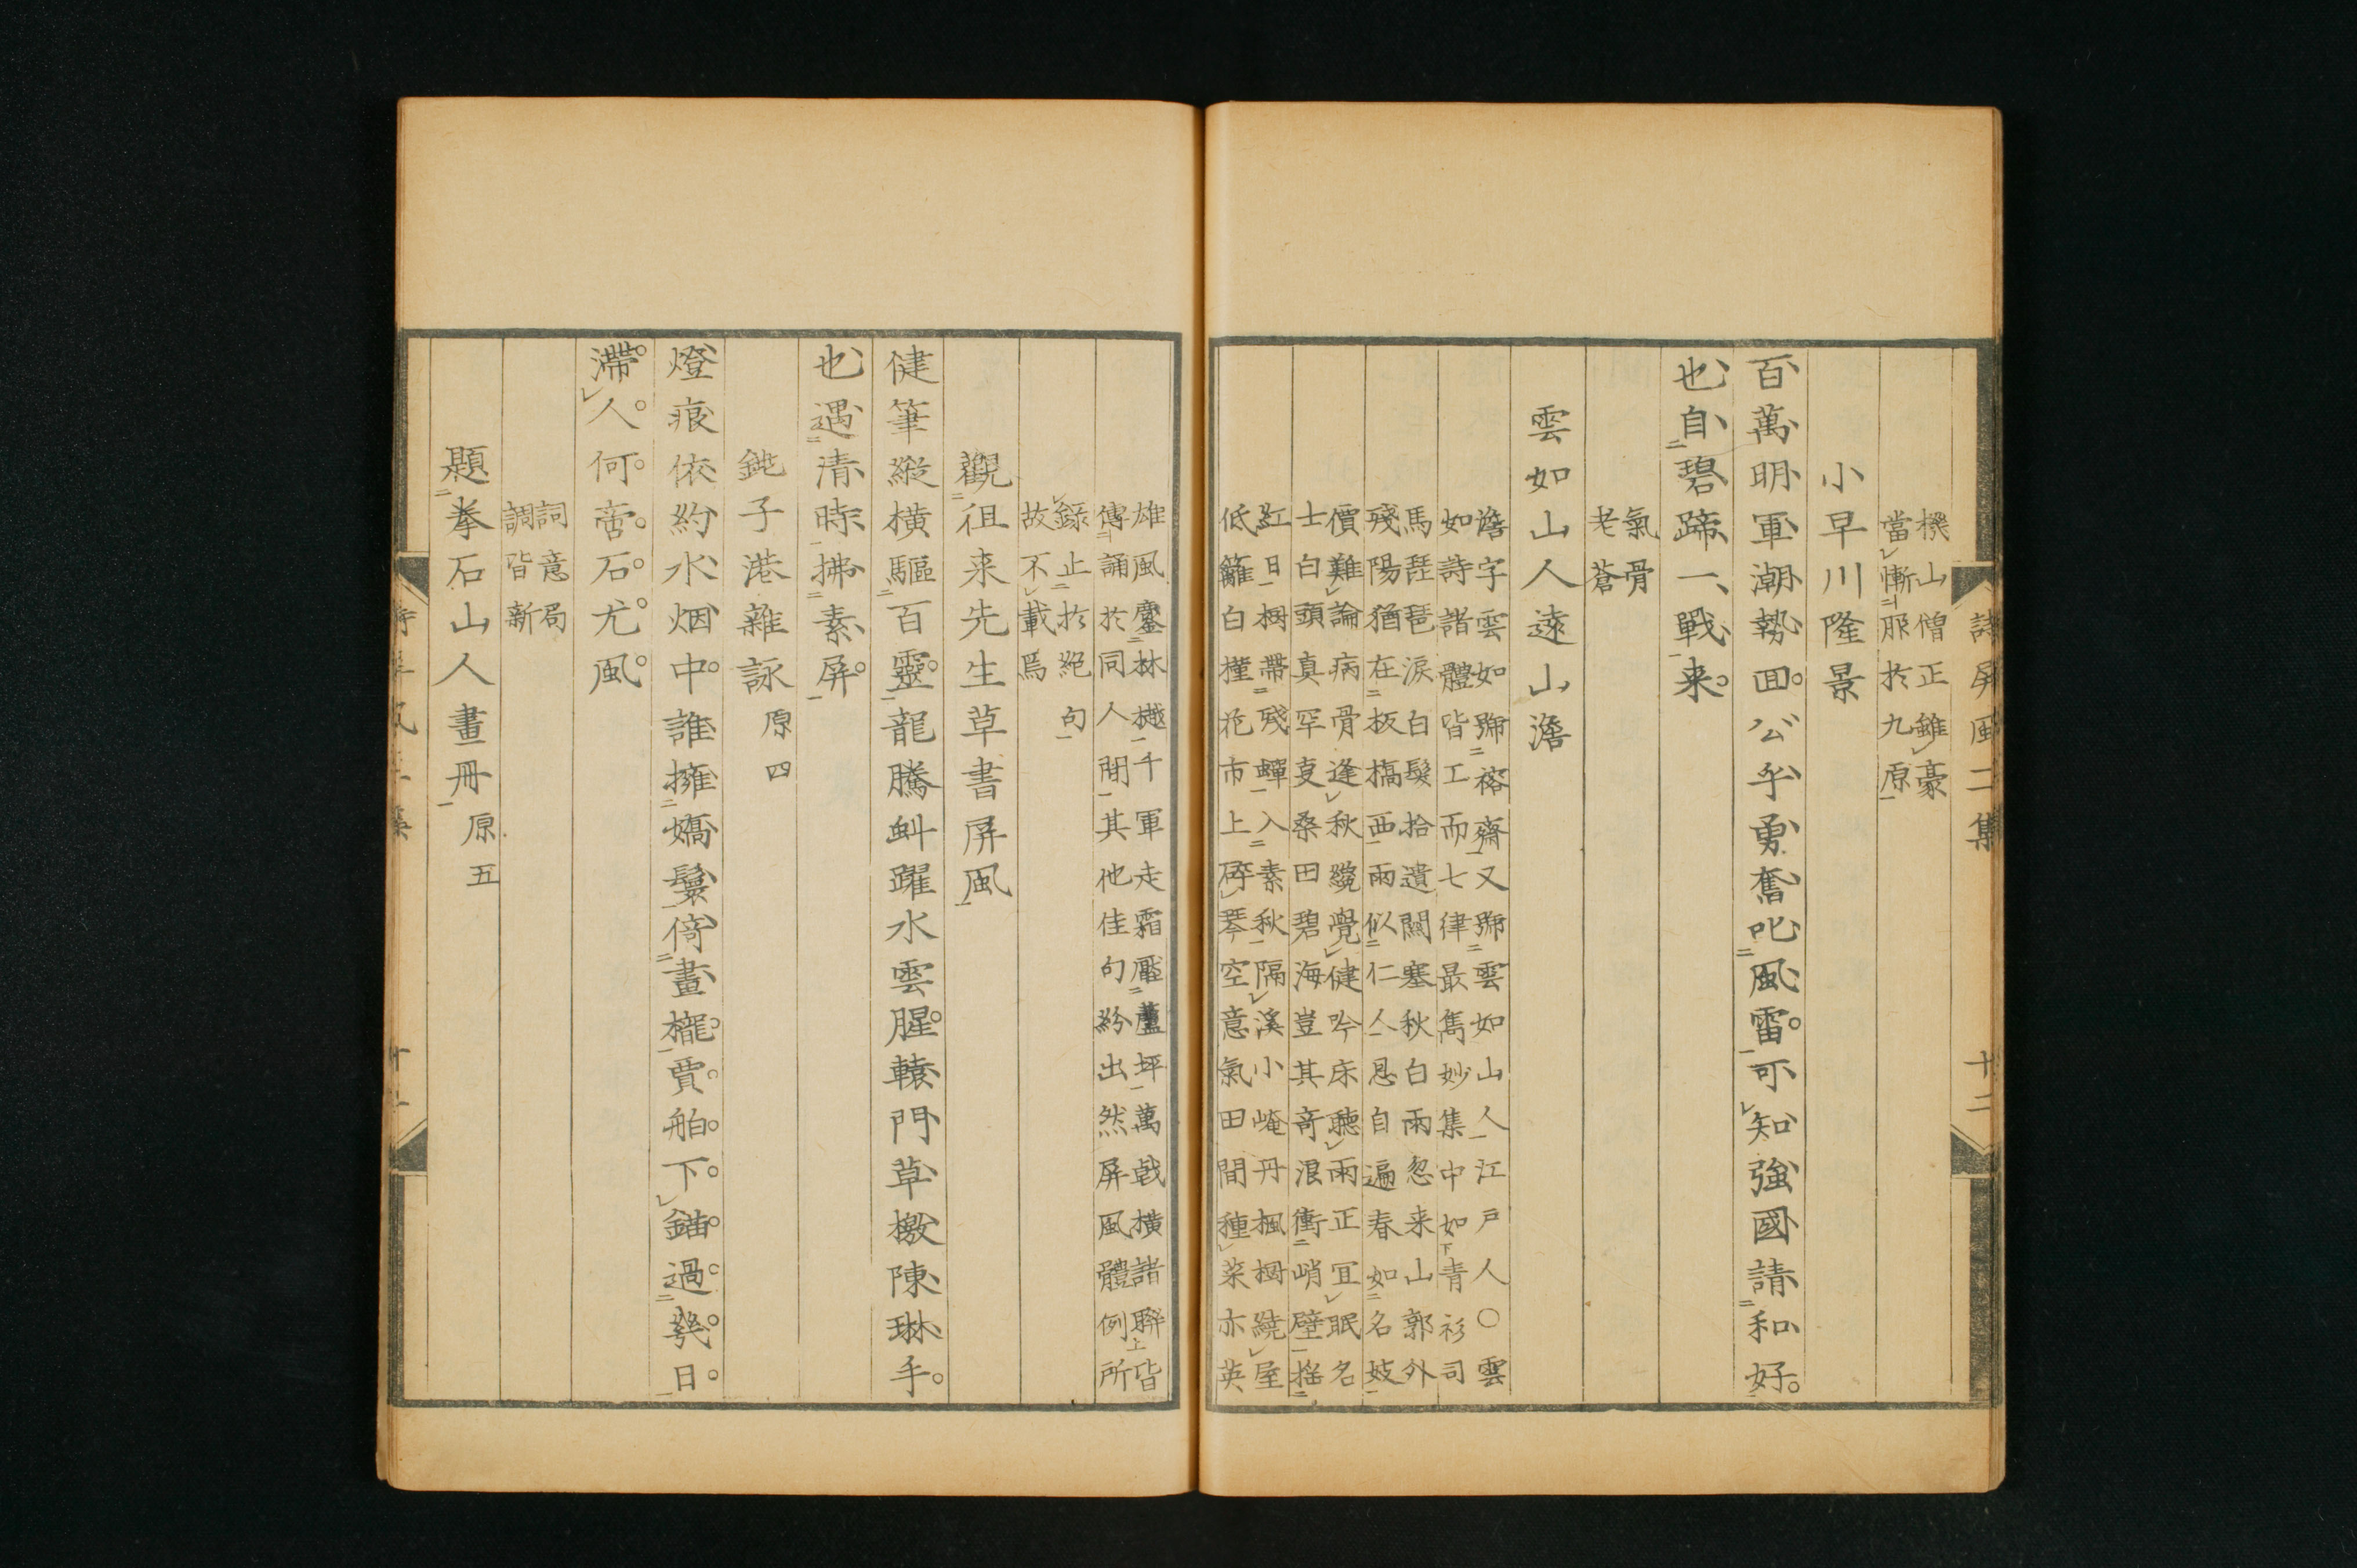 詩屏風二集
十二
機山僧正雖豪
當慚服於九原
小早川隆景
百萬明軍潮勢回公乎勇奮叱風雷可知強國請和好
也自碧蹄一戰来
氣骨
老蒼
雲如山人遠山澹
澹字雲如號裕齋又號雲如山人江戸人〇雲
如詩諸體皆工而七律最雋妙集中如青衫司
馬琵琶淚白髮拾遺關塞秋白雨忽来山郭外
殘陽猶在板橋西雨似仁人恩自遍春如名妓
價難論病骨逢秋纔覺健吟床聽雨正宜眠名
士白頭真罕㕝桑田碧海豈其奇浪衝峭壁搖
紅日樹帶殘蟬入素秋隔溪小崦丹楓樹繞屋
低籬白槿花市上碎琴空意氣田間種菜亦英
雄風鏖林樾千軍走霜壓蘆坪萬戟橫諸聯皆
傳誦於同人間其他佳句紛出然屏風體例所
錄止於絕句
故不載焉
觀徂来先生草書屏風
健筆縱橫驅百靈龍騰虯躍水雲腥轅門草檄陳琳手
也遇清時拂素屏
銚子港雜詠 原四
燈痕依約水烟中誰擁嬌鬟倚畫櫳賈舶下錨過幾日
滯人何啻石尤風
詞意局
調皆新
題拳石山人畫冊 原五